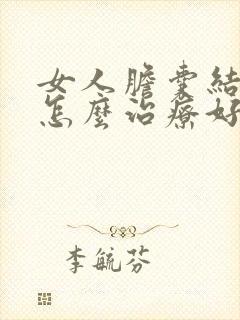 女人膽囊結
怎麼治療好
李毓芬